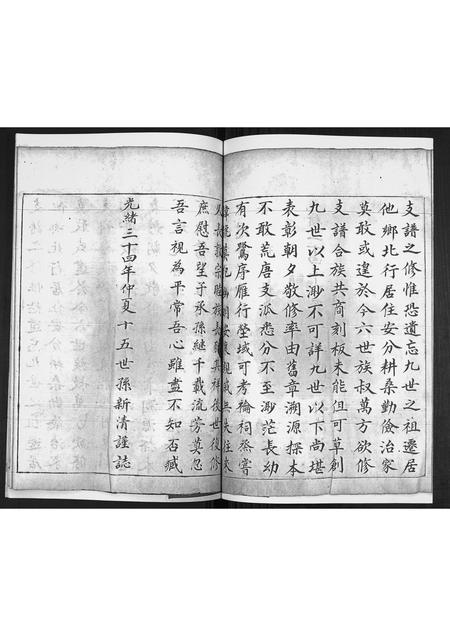 支譜之修惟恐遺忘九世之祖遷居
他鄉北行居住安分耕桑勤儉治家
莫敢或遑於今六世族叔萬方欲修
支譜合族共商刻板未能但可草創
九世以上渺不可詳九世以下尚堪
表彰朝夕敬修率由舊章溯源探本
不敢荒唐支派悉分不至渺茫長幼
有次鴈序雁行塋域可考禴祠烝嘗
庶慰吾望子承孫繼千載流芳莫忽
吾言視為平常吾心雖盡不知否臧
光緒三十四年仲夏十五世孫新清謹誌